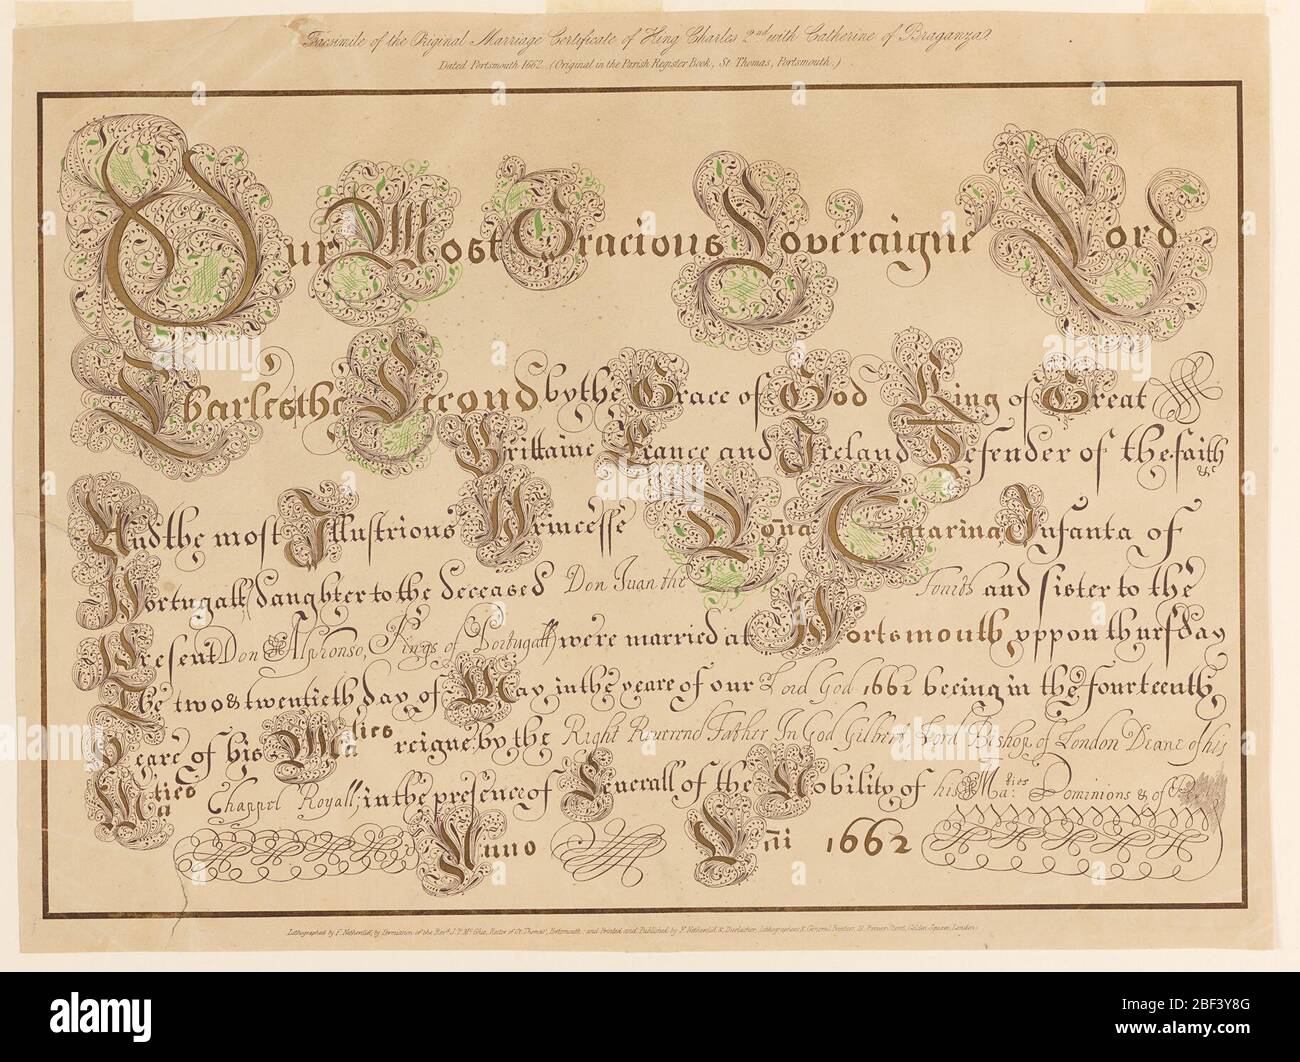 Facsimile of the Original Marriage Certificate of King Charles 2nd with Catherine of Braganza.
Dated Portsmouth 1662. (Original in the Parish Register Book, St Thomas, Portsmouth.)
Our Most Gracious Soveraigne Lord
Charles the Second by the Grace of God King of Great
Brittaine France and Ireland Defender of the faith &c
And the most Illustrious Princesse Dona Catarina Infanta of
Portugall daughter to the deceased Don Juan the Fourth and sister to the
Present Don Alphonso, Kings of Portugall were married at Portsmouth uppon thursday
The two & twentieth day of May in the yeare of our Lord God 1662 beeing in the fourteenth
Yeare of his Maties reigne, by the Right Reverend Father In God Gilbert Lord Bishop of London Deane of his
Maties Chappel Royall, in the presence of Severall of the Nobility of his Maties Dominions & of
Anno Dni 1662
Lithographed by F. Netherclift, by Permission of the Revd. J. P. Mc Ghie, Rector of St. Thomas', Portsmouth: and Printed and Published by F. Netherclift & Durlacher, Lithographers & General Printers, Brewer Street, Golden Square, London.
alamy
Image ID: 2BF3Y8G
www.alamy.com